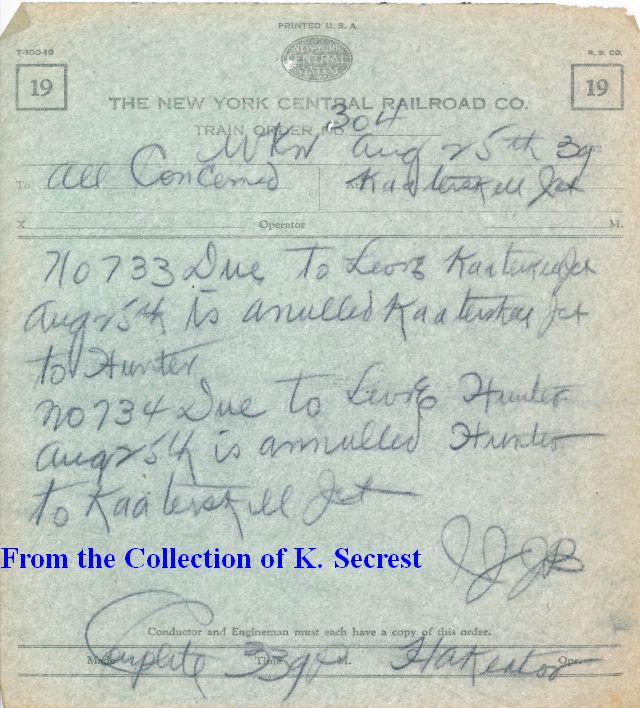 PRINTED U. S. A.
T-100-19 NEW YORK CENTRAL SYSTEM R. D. CO.
19 19
THE NEW YORK CENTRAL RAILROAD CO.
TRAIN ORDER NO. 304
Aug 25th 39
To All Concerned Kaaterskill Jct
X Operator M.
No 733 Due to Leave Kaaterskill Jct
Aug 25th is anulled Kaaterskill Jct
to Hunter
No 734 Due to Leave Hunter
Aug 25th is annulled Hunter
to Kaaterskill Jct
From the Collection of K. Secrest
JJB
Conductor and Engineman must each have a copy of this order.
Made Complete Time 339 P M. Opr.